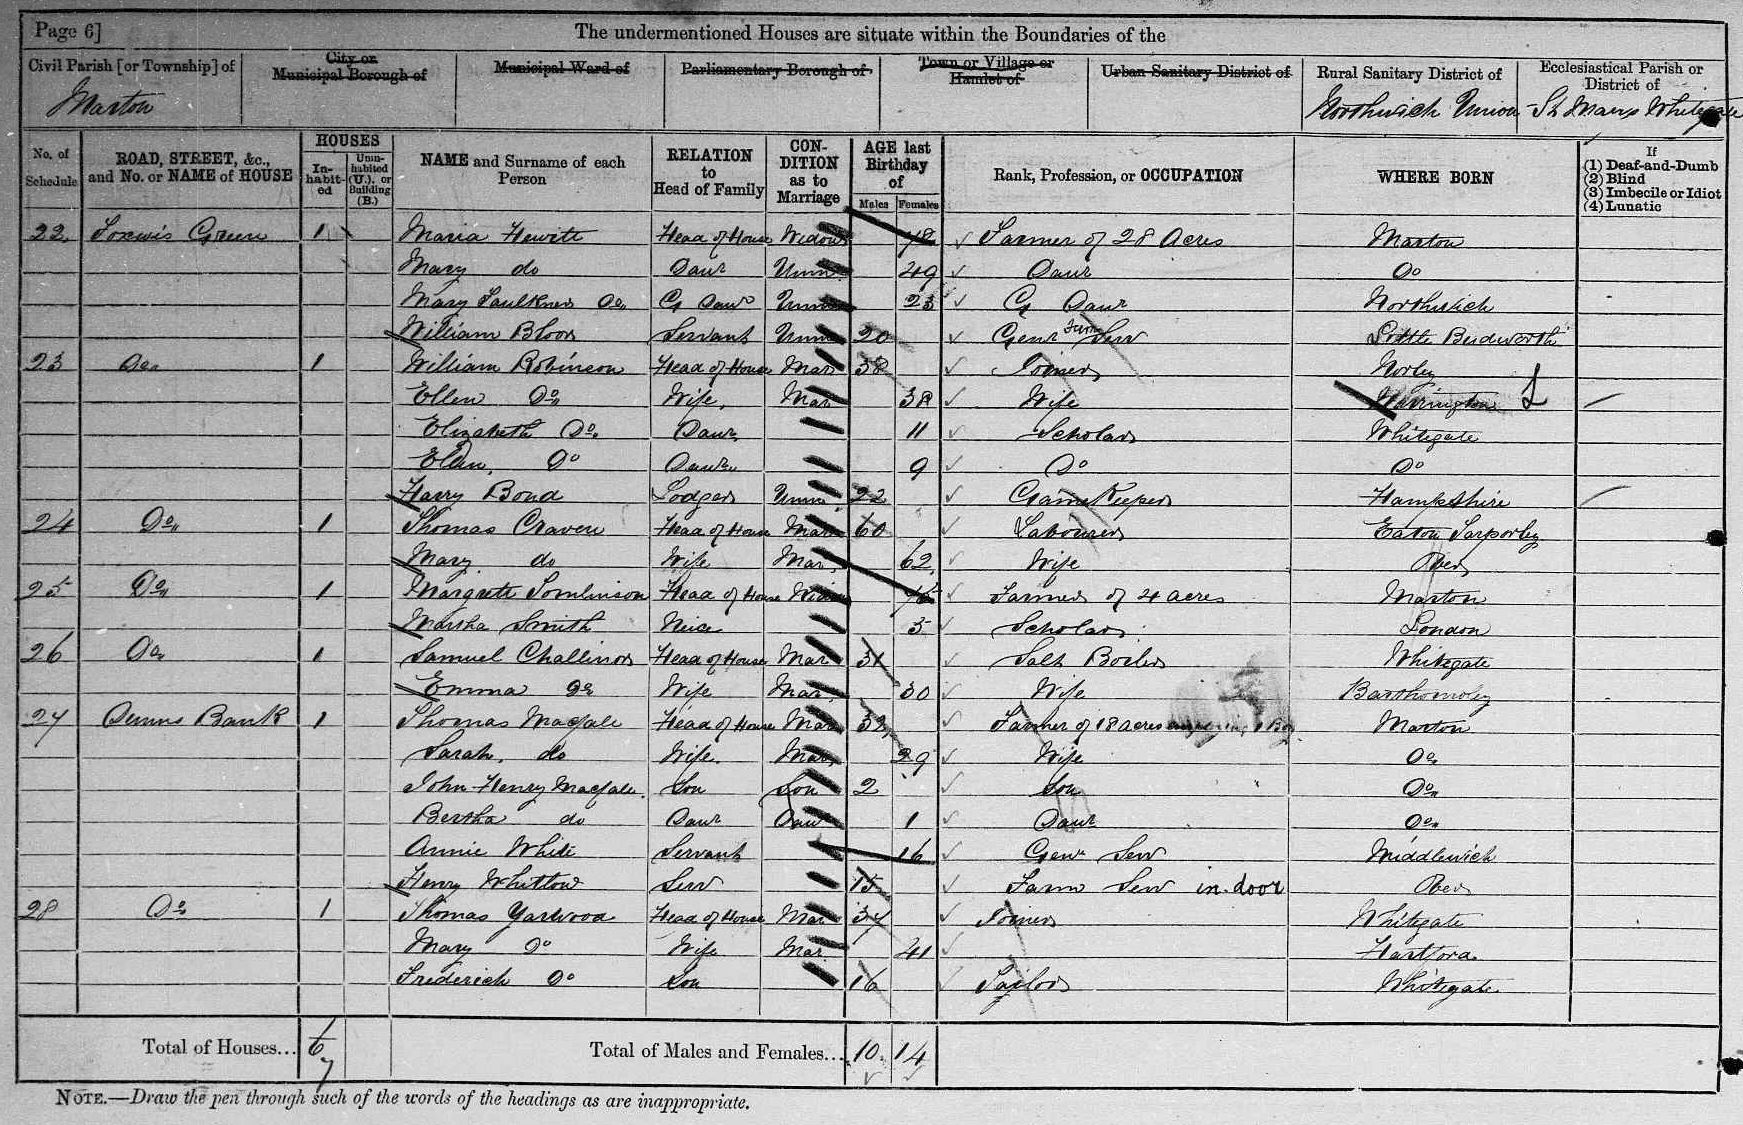 Page 6]
The undermentioned Houses are situate within the Boundaries of the
Civil Parish [or Township] of
Marton
City or Municipal Borough of
Municipal Ward of
Parliamentary Borough of
Town or Village or Hamlet of
Urban Sanitary District of
Rural Sanitary District of
Northwich Union
Ecclesiastical Parish or District of
St Marys Whitegate
No. of Schedule
ROAD, STREET, &c., and No. or NAME of HOUSE
HOUSES
In-habit-ed
Unin-habited (U.), or Building (B.)
NAME and Surname of each Person
RELATION to Head of Family
CON-DITION as to Marriage
AGE last Birthday of
Males Females
Rank, Profession, or OCCUPATION
WHERE BORN
If
(1) Deaf-and-Dumb
(2) Blind
(3) Imbecile or Idiot
(4) Lunatic
22 Foxwis Green 1 Maria Hewitt Head of House Widow 78 Farmer of 28 Acres Marton
Mary do Daur Unm 49 Daur Do
Mary Faulkner Do G Daur Unm 23 G Daur Northwich
William Bloor Servant Unm 20 Genr Farm Serv Little Budworth
23 Do 1 William Robinson Head of House Mar 38 Joiner Norley
Ellen Do Wife Mar 38 Wife Warrington L
Elizabeth Do Daur 11 Scholar Whitegate
Ellen Do Daur 9 Do Do
Harry Bond Lodger Unm 22 Game Keeper Hampshire
24 Do 1 Thomas Craven Head of House Mar 60 Labourer Eaton Tarporley
Mary do Wife Mar 62 Wife Over
25 Do 1 Margrett Tomlinson Head of House Widow 75 Farmer of 4 acres Marton
Martha Smith Neice 5 Scholar London
26 Do 1 Samuel Challinor Head of House Mar 31 Salt Boiler Whitegate
Emma Do Wife Mar 30 Wife Barthomoley
27 Daums Bank 1 Thomas Macfale Head of House Mar 32 Farmer of 18 acres 1 Boy Marton
Sarah do Wife Mar 29 Wife Do
John Henry Macfale Son Son 2 Son Do
Bertha do Daur Daur 1 Daur Do
Annie White Servant 16 Genr Serv Middlewich
Henry Whitlow Serv 15 Farm Serv in-door Over
28 Do 1 Thomas Yarwood Head of House Mar 37 Joiner Whitegate
Mary Do Wife Mar 41 Hartford
Frederick Do Son 16 Tailor Whitegate
Total of Houses... 6 7
Total of Males and Females... 10 14
NOTE.—Draw the pen through such of the words of the headings as are inappropriate.